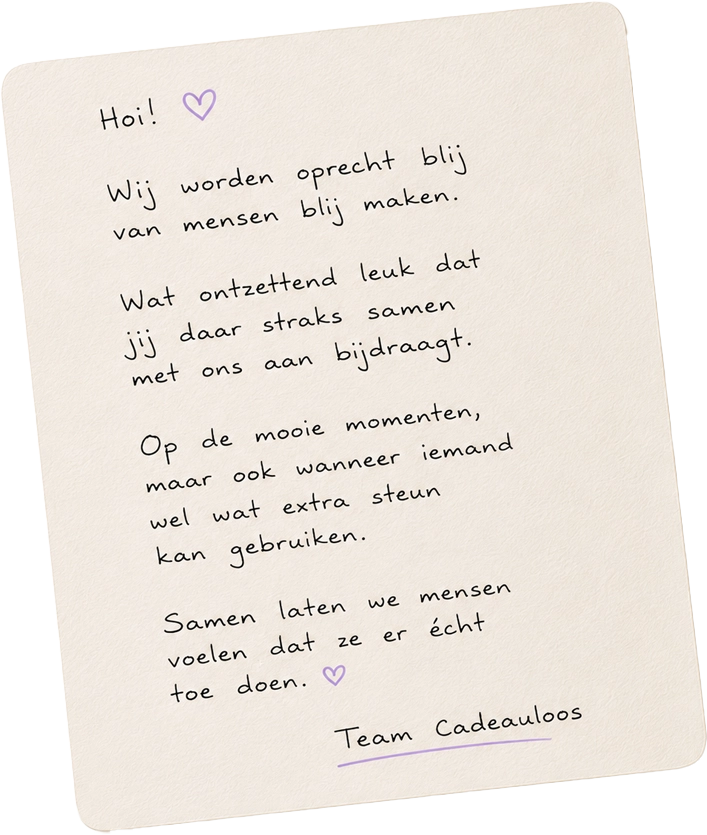 Hoi! ♡
Wij worden oprecht blij
van mensen blij maken.
Wat ontzettend leuk dat
jij daar straks samen
met ons aan bijdraagt.
Op de mooie momenten,
maar ook wanneer iemand
wel wat extra steun
kan gebruiken.
Samen laten we mensen
voelen dat ze er écht
toe doen. ♡
Team Cadeauloos